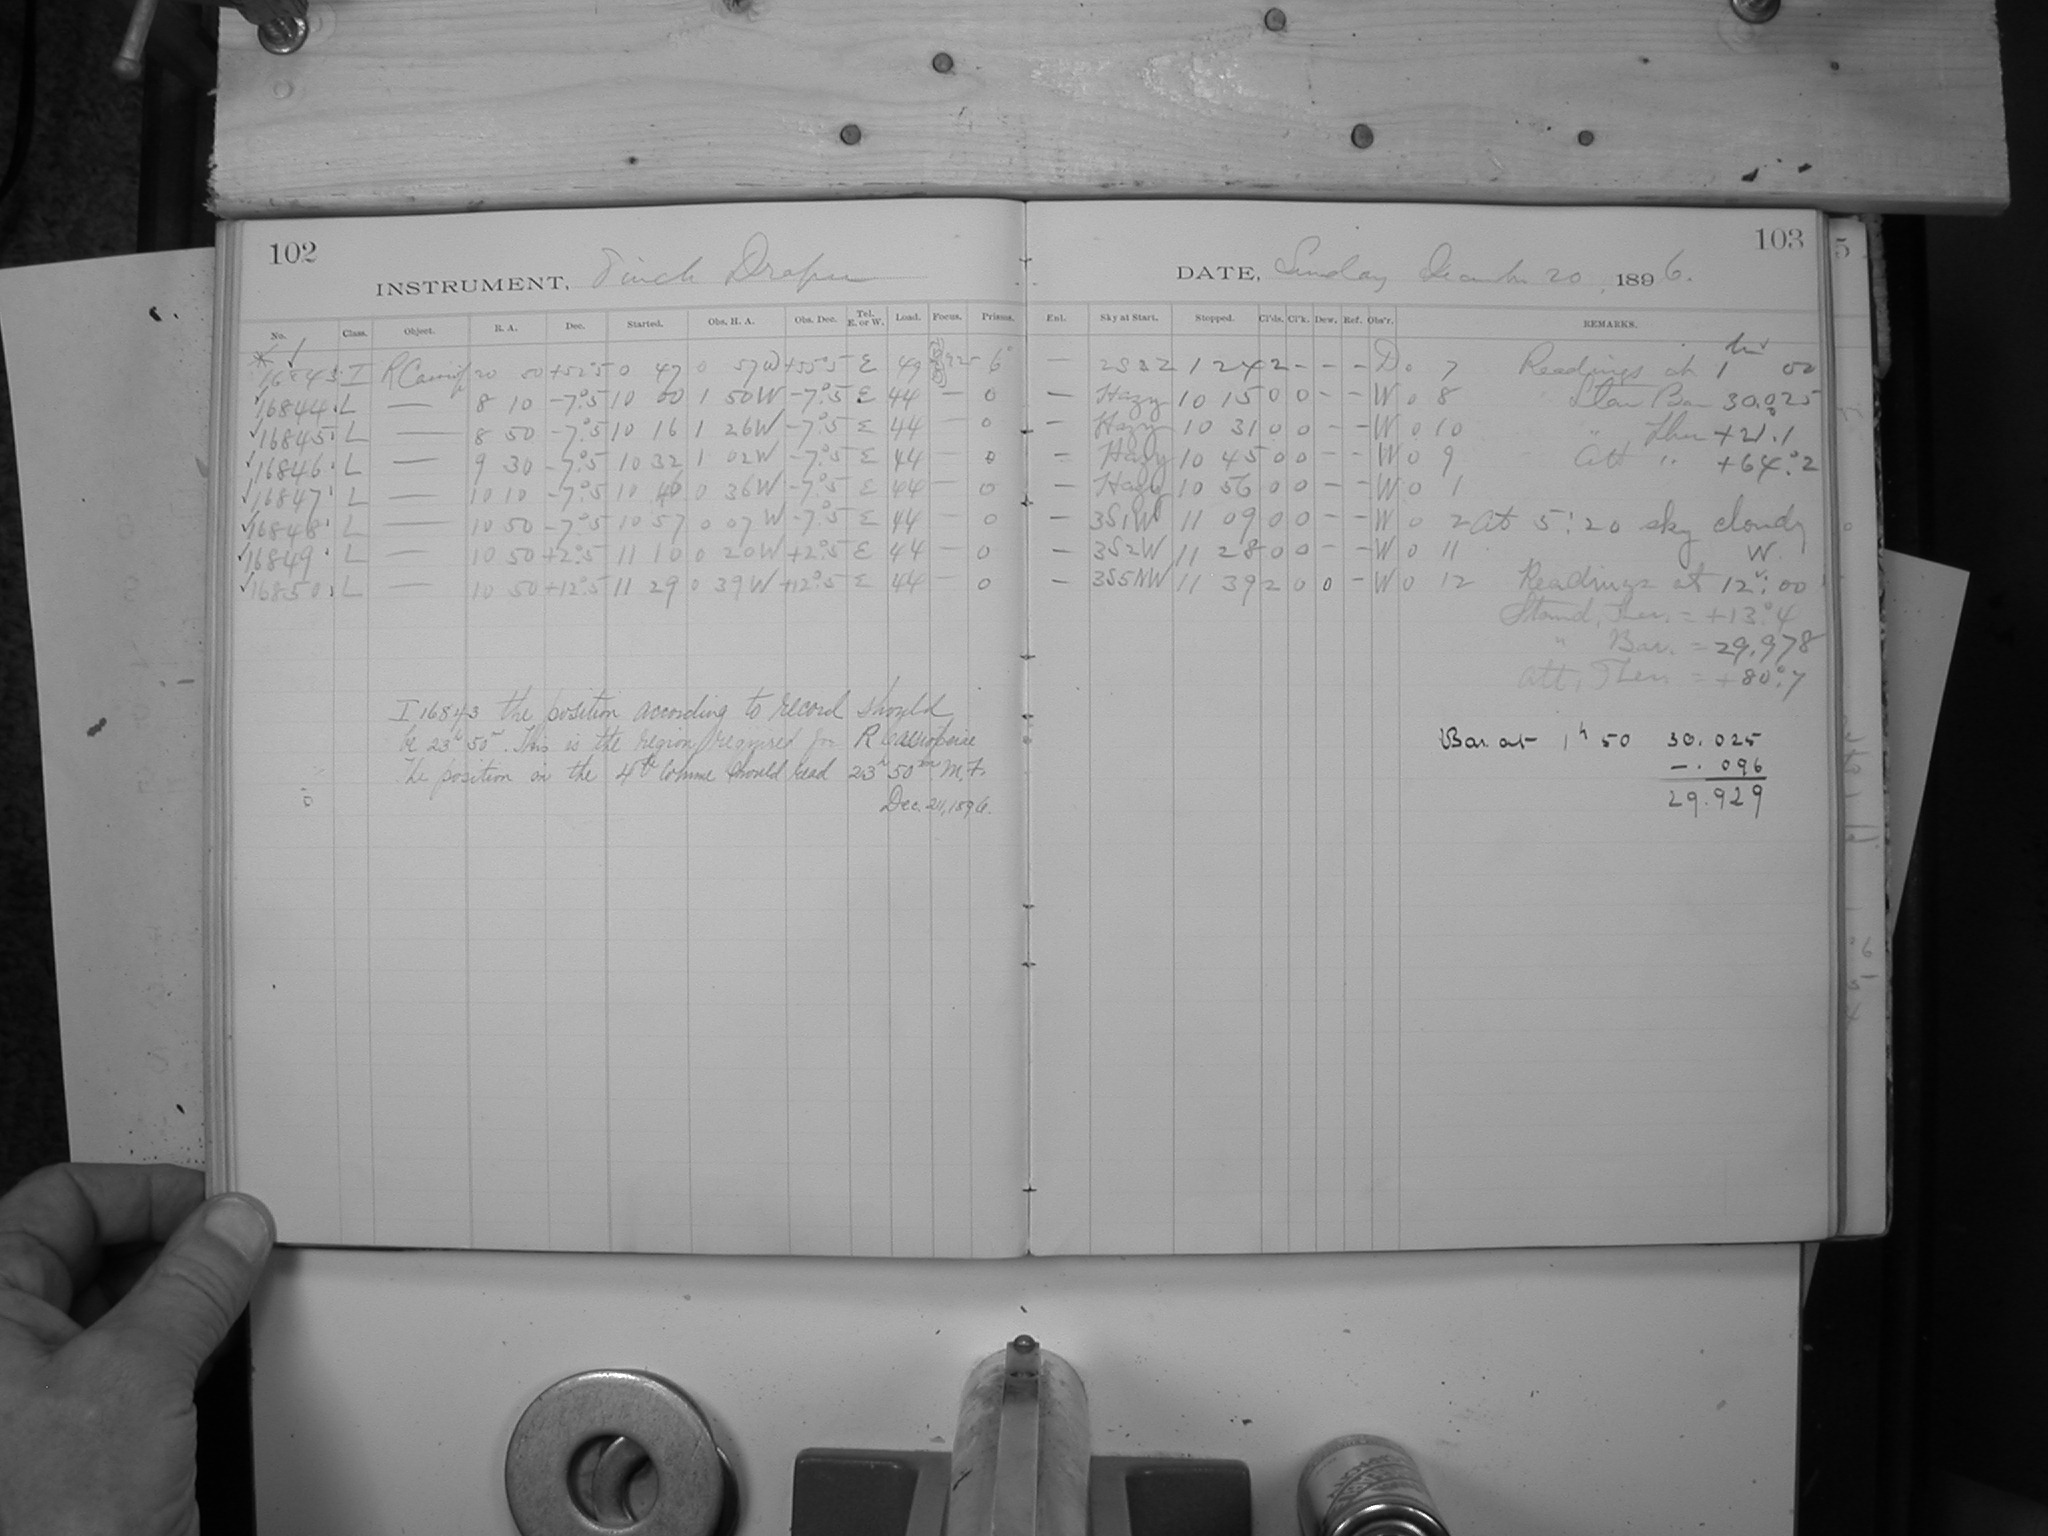 102
INSTRUMENT, 8 inch Draper
No. Class. Object. R. A. Dec. Started. Obs. H. A. Obs. Dec. Tel. E. or W. Load. Focus. Prisms.
16843 I R Cassiop 20 50 +52°5 0 47 0 57W +55°5 E 49 925 6°
16844 L — 8 10 -7°.5 10 00 1 50W -7°.5 E 44 — 0
16845 L — 8 50 -7°.5 10 16 1 26W -7°.5 E 44 — 0
16846 L — 9 30 -7°.5 10 32 1 02W -7°.5 E 44 — 0
16847 L — 10 10 -7°.5 10 46 0 36W -7°.5 E 44 — 0
16848 L — 10 50 -7°.5 10 57 0 07W -7°.5 E 44 — 0
16849 L — 10 50 +2°.5 11 10 0 20W +2°.5 E 44 — 0
16850 L — 10 50 +12°.5 11 29 0 39W +12°.5 E 44 — 0
I 16843 the position according to record should
be 23h 50m. This is the region required for R Cassiopeiae
The position in the 4th column should read 23h 50m M.F.
Dec. 24, 1896.
103
DATE, Sunday December 20, 1896.
Enl. Sky at Start. Stopped. Cl'ds. Cl'k. Dew. Ref. Obs'r. REMARKS.
— 2S2Z 1 24 2 - - - D. 7 Readings at 1 50
— Hazy 10 15 0 0 - - W 0 8 Stan Bar 30.025
— Hazy 10 31 0 0 - - W 0 10 " Ther +21.1
— Hazy 10 45 0 0 - - W 0 9 Att " +64°.2
— Hazy 10 56 0 0 - - W 0 1
— 3S1W 11 09 0 0 - - W 0 2 At 5:20 sky cloudy
— 3S2W 11 28 0 0 - - W 0 11 W.
— 3S5NW 11 39 2 0 0 - W 0 12 Readings at 12:00
Stand. Ther. = +13°.4
" Bar. = 29.978
Att. Ther. = +80°.7
Bar. at 1h 50 30.025
-.096
29.929